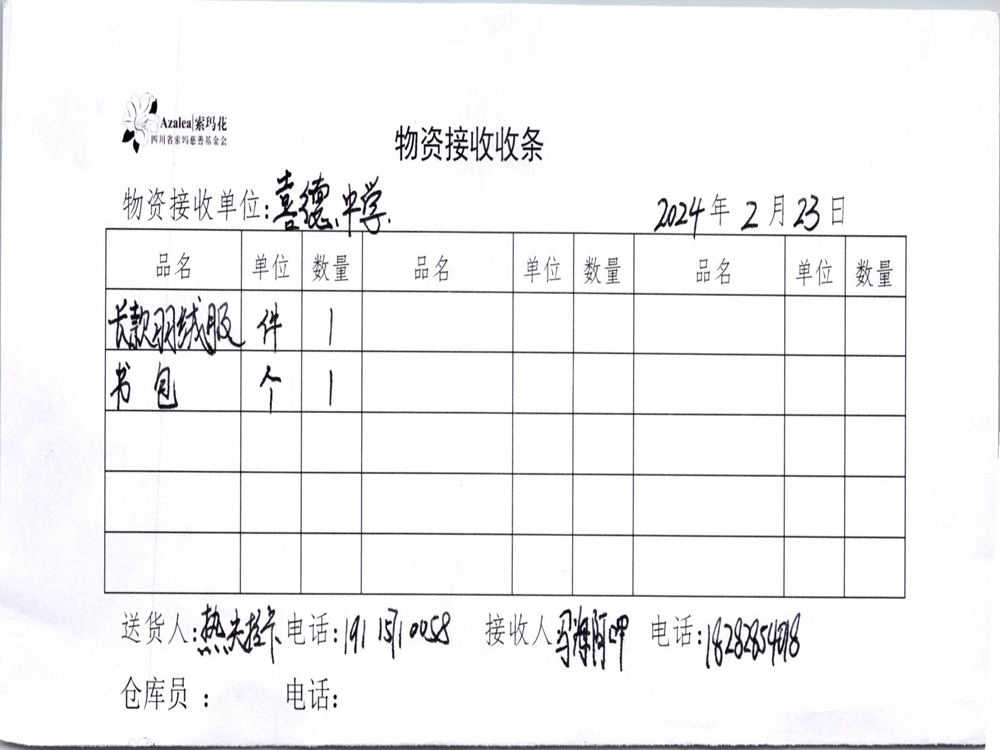 Azalea|索玛花
四川省索玛慈善基金会
物资接收收条
物资接收单位:喜德中学. 2024年2月23日
品名 单位 数量 品名 单位 数量 品名 单位 数量
长款羽绒服 件 1
书包 个 1
送货人: 电话: 接收人 电话:
仓库员: 电话: